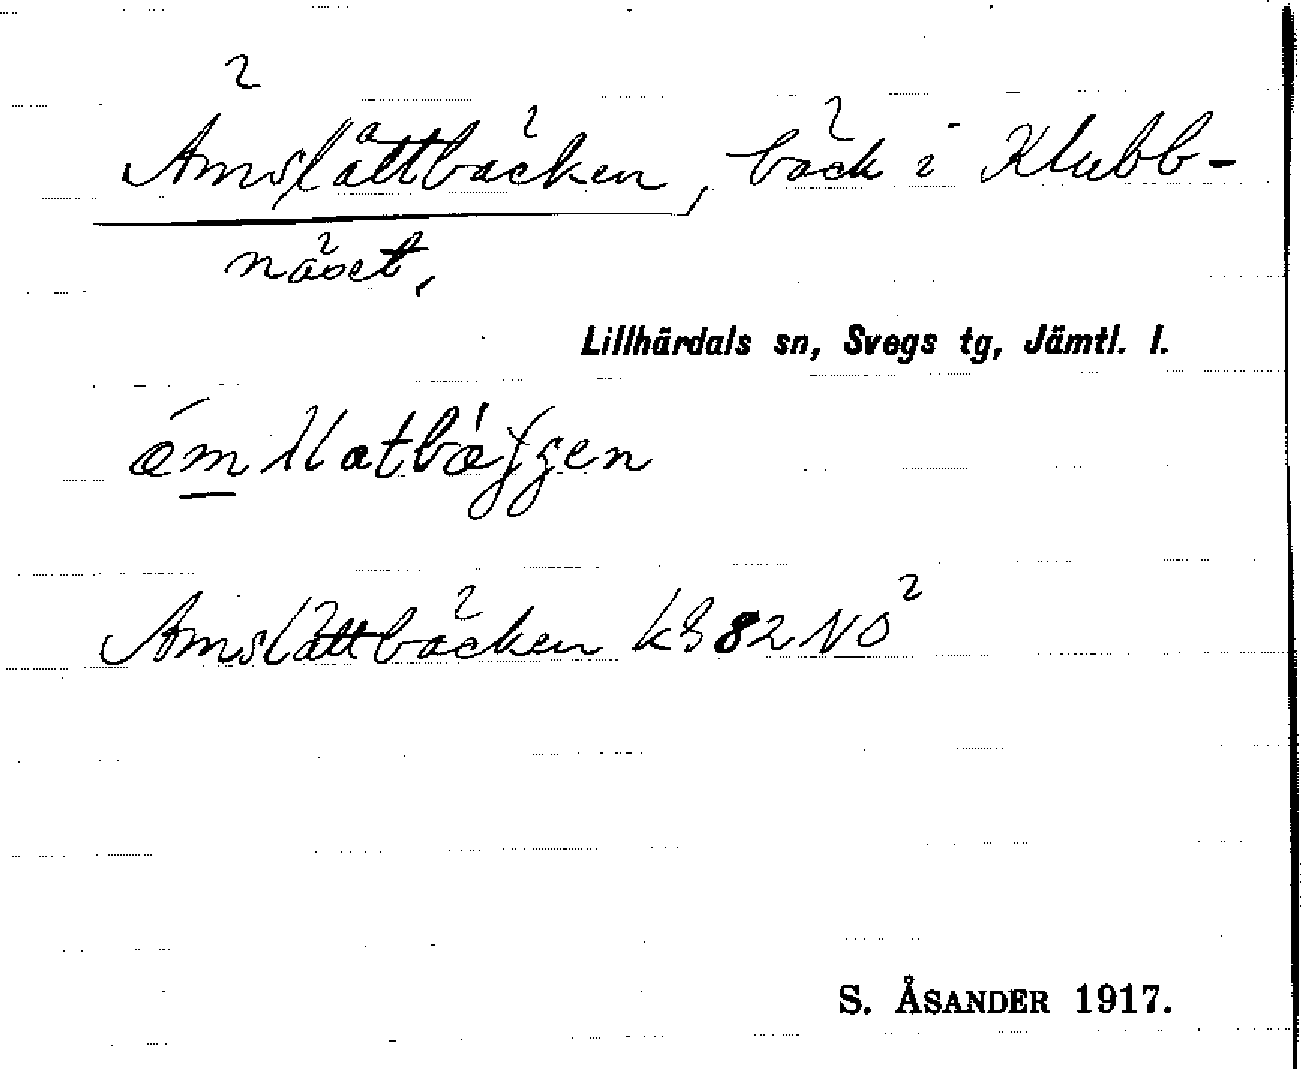 Ämslåttbäcken, bäck i Klubb-
näset,
Lillhärdals sn, Svegs tg, Jämtl. l.
Amslåttbäcken kB 82 NO²
S. ÅSANDER 1917.